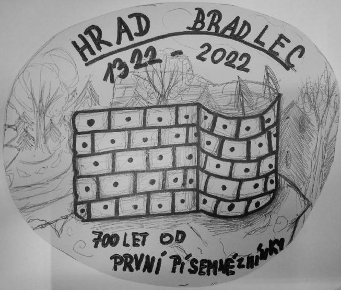 HRAD BRADLEC
1322 - 2022
700 LET OD
PRVNÍ PÍSEMNÉ ZMÍNKY